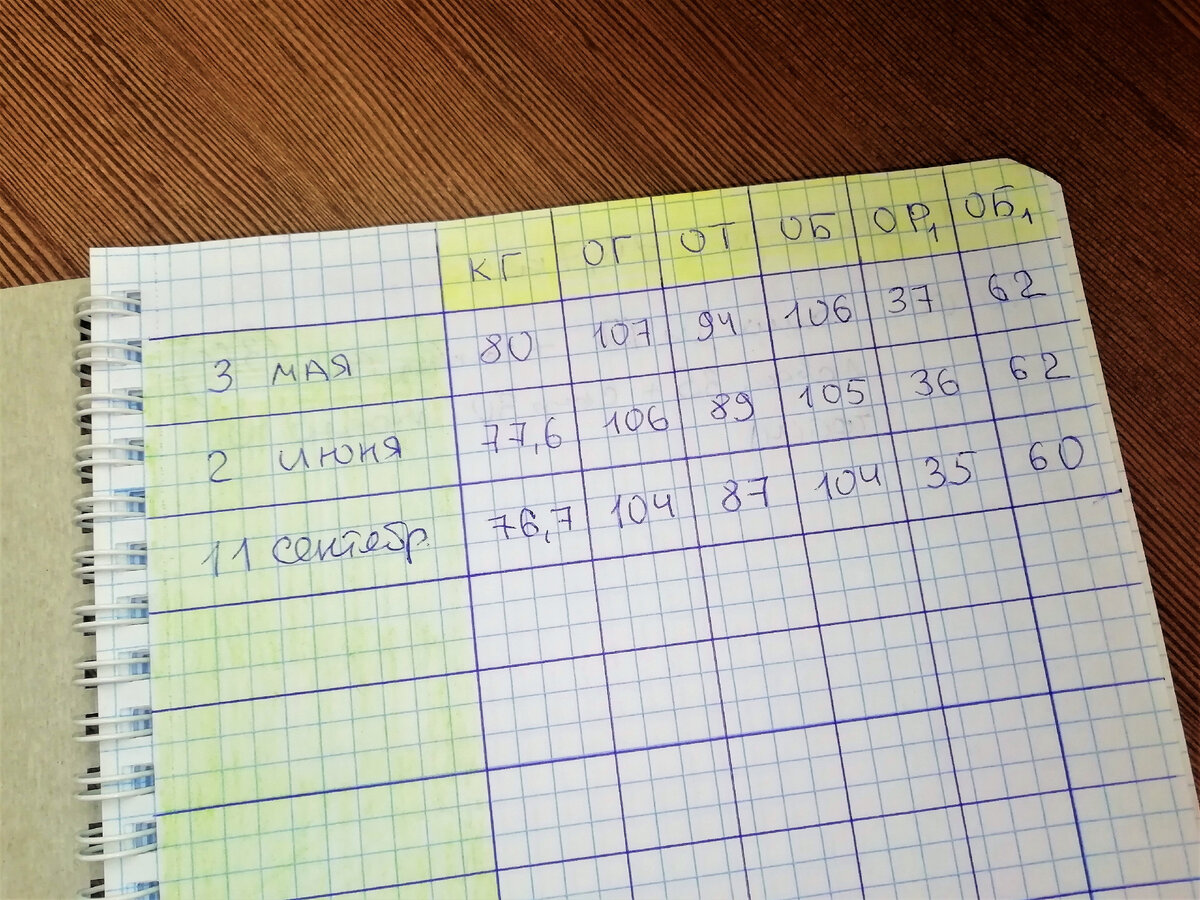 КГ ОГ ОТ ОБ ОР1 ОБ1
3 мая 80 107 94 106 37 62
2 июня 77,6 106 89 105 36 62
11 сентябр. 76,7 104 87 104 35 60